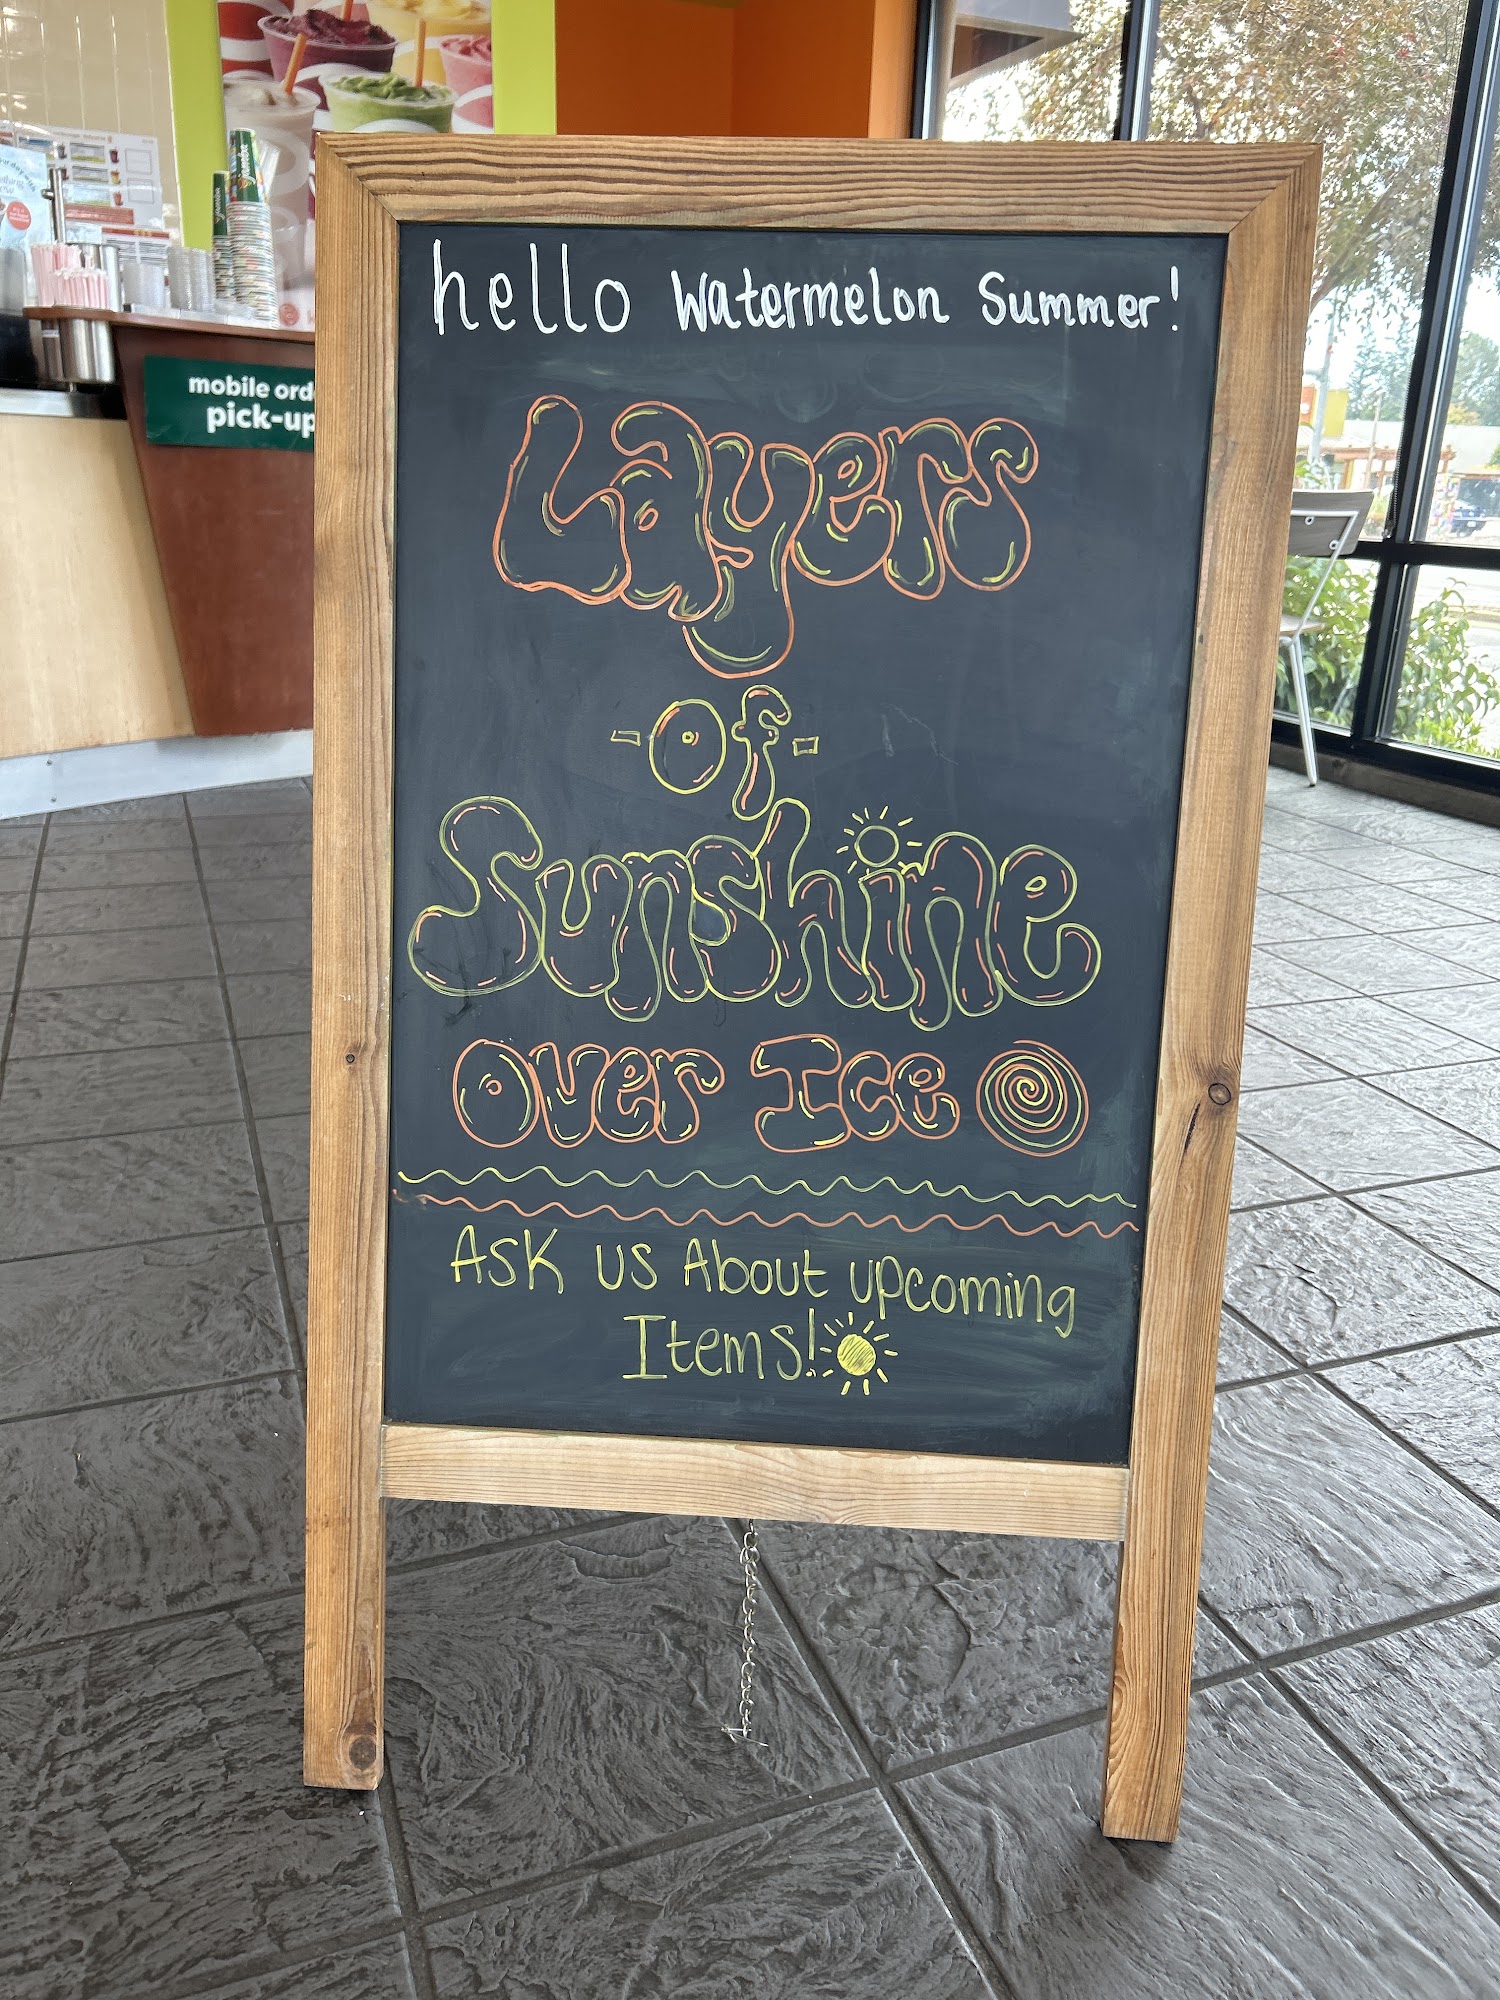 hello Watermelon Summer!
Layers
-of-
Sunshine
Over Ice
ASK US About upcoming
Items!
mobile ord
pick-up
jamba